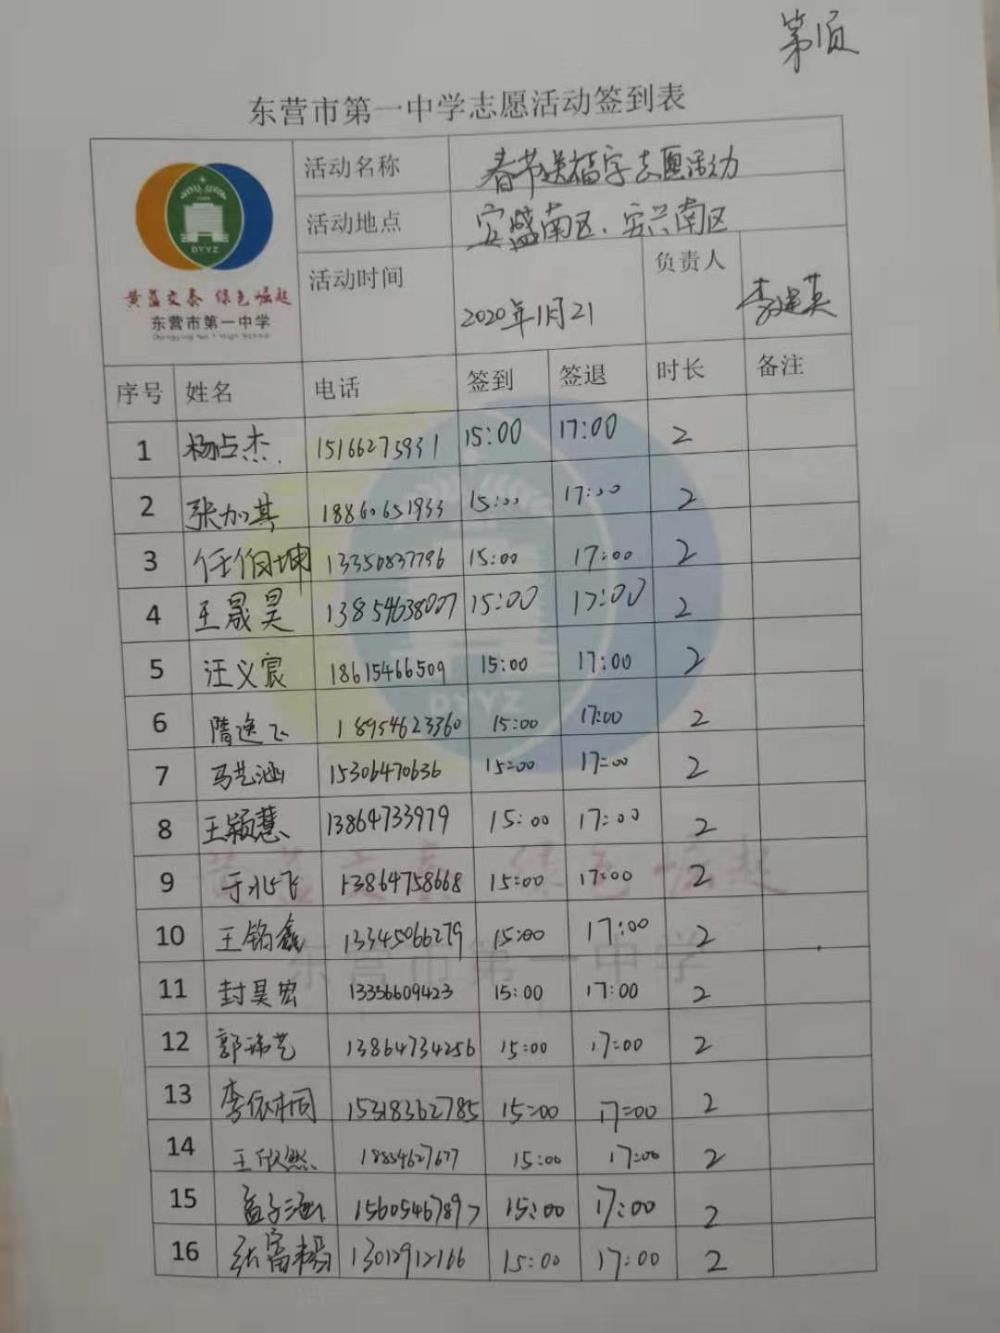 第1页
东营市第一中学志愿活动签到表
DYYZ
黄蓝交泰 绿色崛起
东营市第一中学
Dongying No.1 High School
活动名称 春节送福字志愿活动
活动地点 安盛南区、安兴南区
活动时间 2020年1月21 负责人 李建英
序号 姓名 电话 签到 签退 时长 备注
1 杨占杰 15166275931 15:00 17:00 2
2 张加其 18860651933 15:00 17:00 2
3 任伯坤 13350837796 15:00 17:00 2
4 王晟昊 13854638007 15:00 17:00 2
5 汪义宸 18615466509 15:00 17:00 2
6 隋逸飞 18954623360 15:00 17:00 2
7 马艺涵 15306470636 15:00 17:00 2
8 王颖慧 13864733979 15:00 17:00 2
9 于兆飞 13864758668 15:00 17:00 2
10 王铭鑫 13345066279 15:00 17:00 2
11 封昊宏 13356609423 15:00 17:00 2
12 郭祎艺 13864734256 15:00 17:00 2
13 李依桐 15318362785 15:00 17:00 2
14 王欣然 15:00 17:00 2
15 孟子涵 15605467897 15:00 17:00 2
16 张富杨 13012912166 15:00 17:00 2
DYYZ
黄蓝交泰 绿色崛起
东营市第一中学